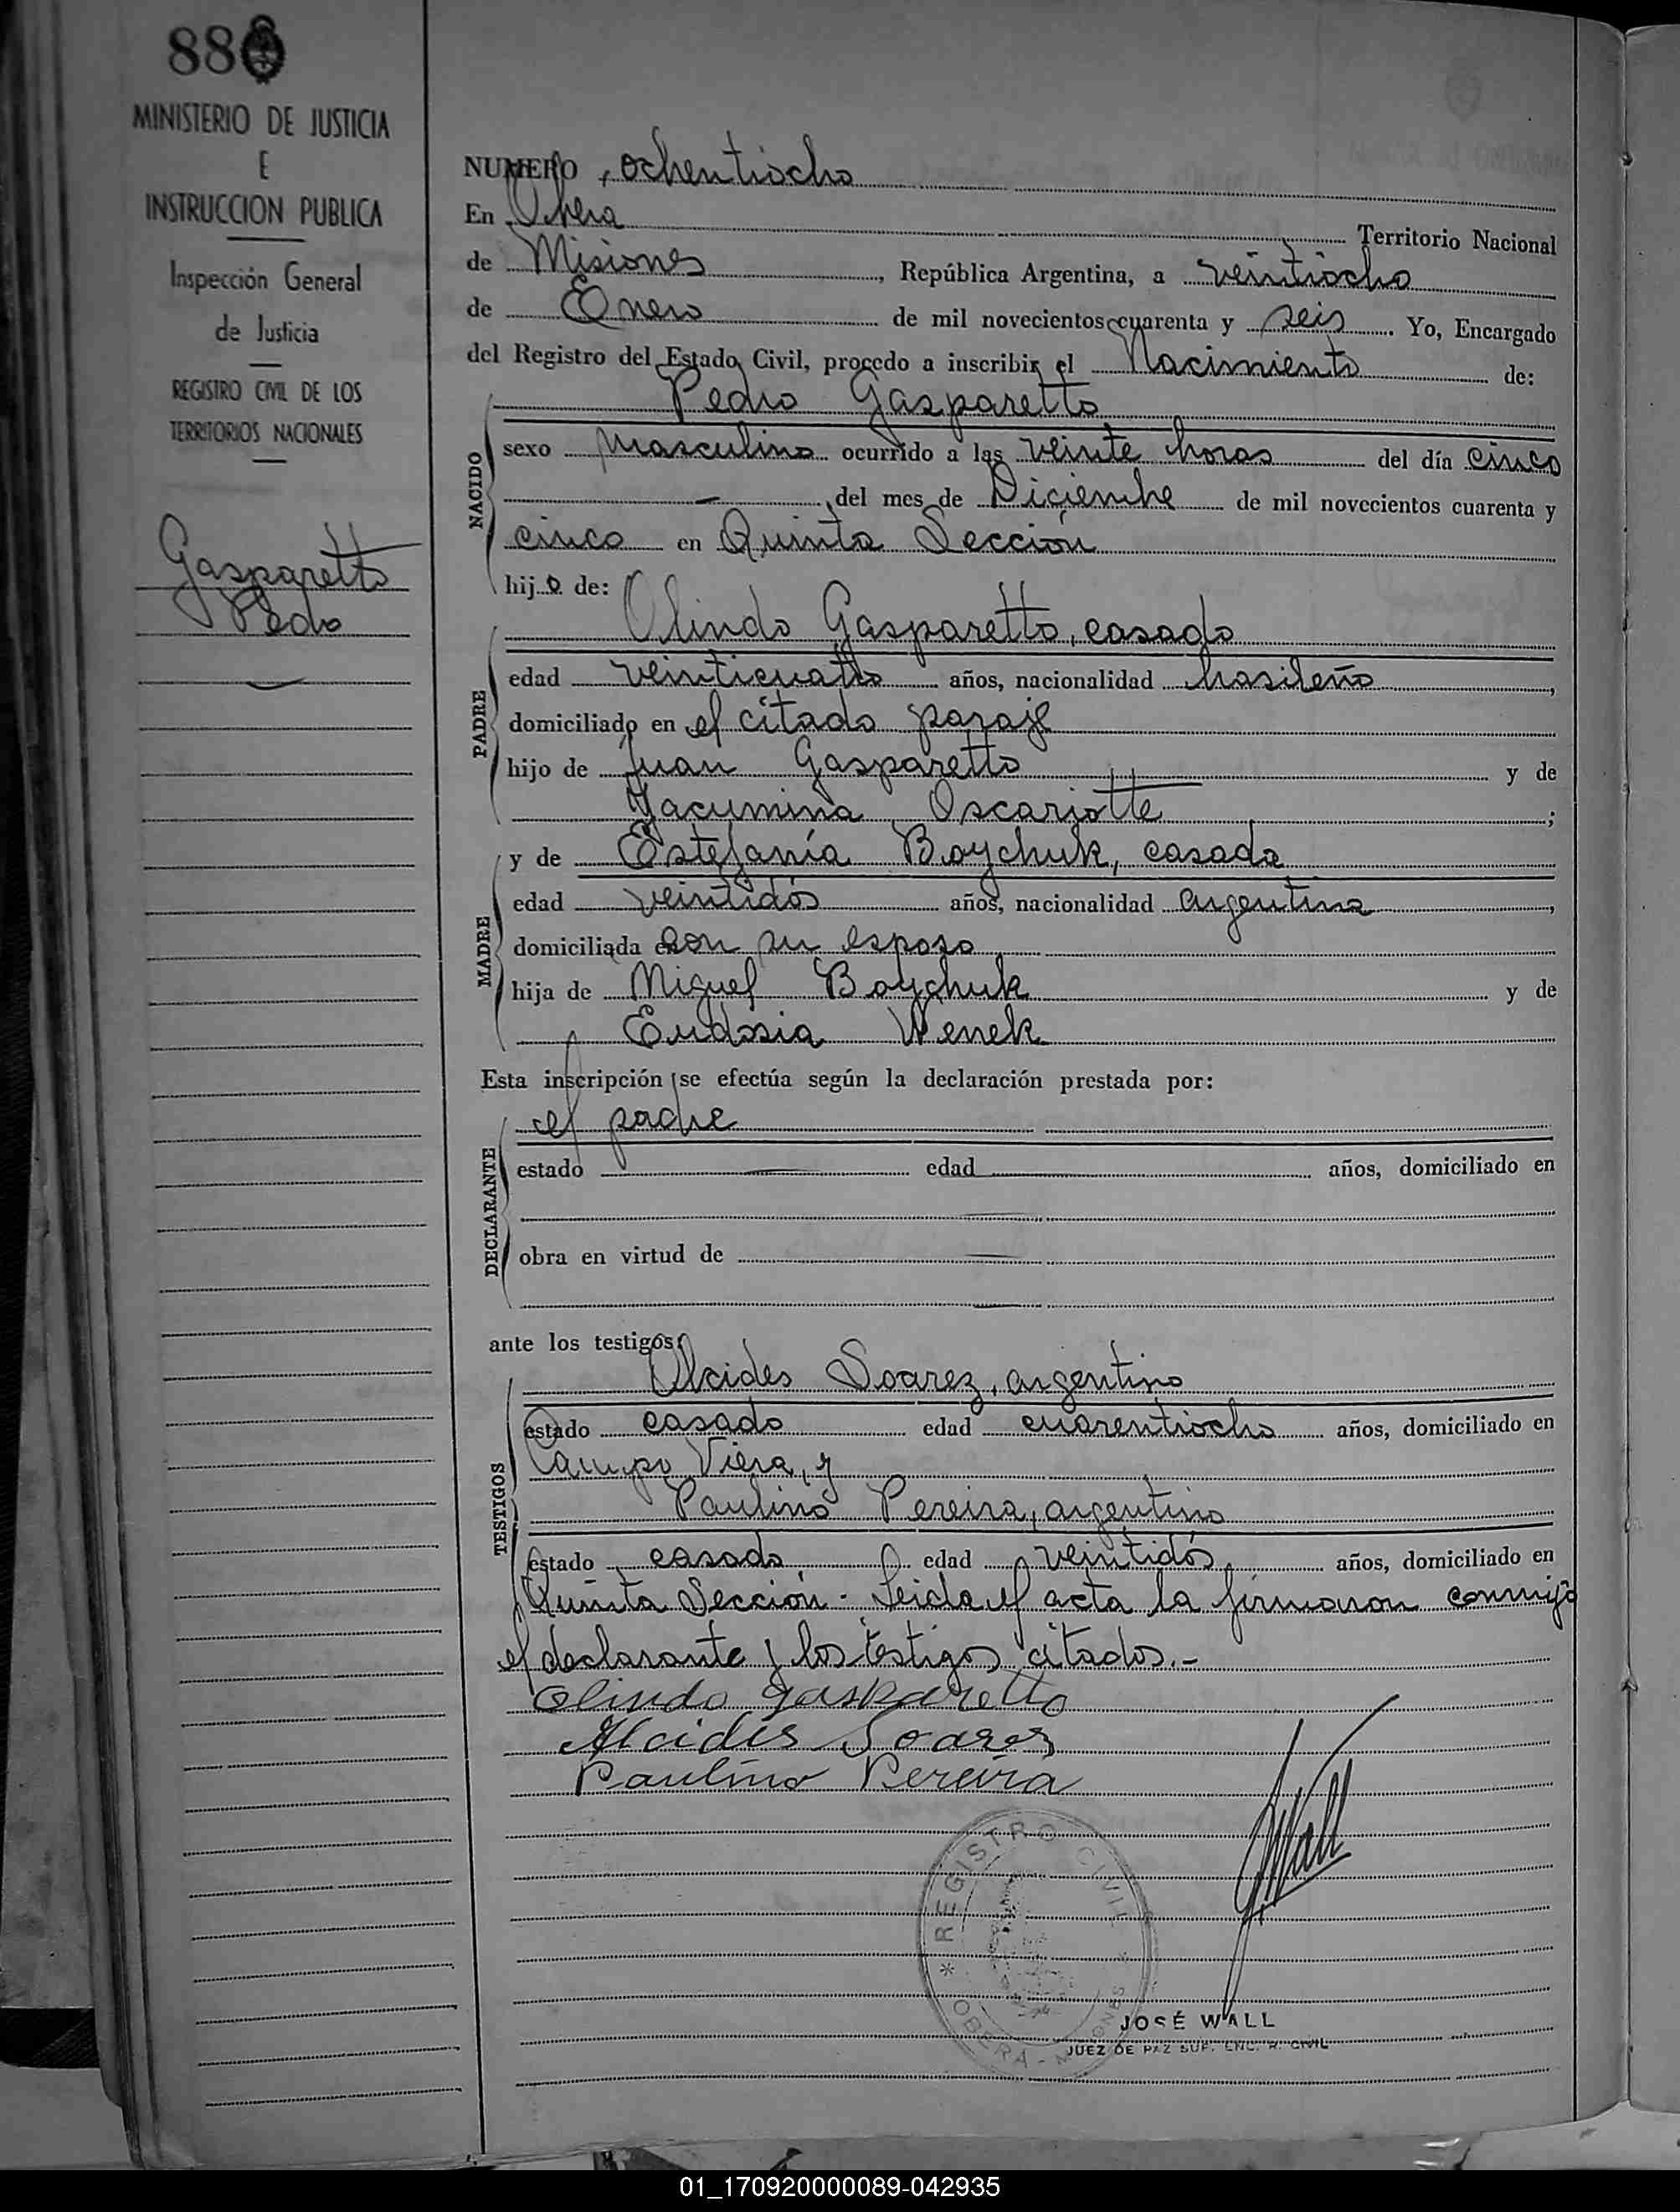 88
MINISTERIO DE JUSTICIA
E
INSTRUCCION PUBLICA
Inspección General
de Justicia
REGISTRO CIVIL DE LOS
TERRITORIOS NACIONALES
Gasparetto
Pedro
NUMERO, ochentiocho
En Obera Territorio Nacional
de Misiones, República Argentina, a veintiocho
de Enero de mil novecientos cuarenta y seis. Yo, Encargado
del Registro del Estado Civil, procedo a inscribir el Nacimiento de:
Pedro Gasparetto
NACIDO
sexo masculino ocurrido a las veinte horas del día cinco
— del mes de Diciembre de mil novecientos cuarenta y
cinco en Quinta Sección
hijo de:
Olindo Gasparetto, casado
PADRE
edad veinticuatro años, nacionalidad brasileño,
domiciliado en el citado paraje
hijo de Juan Gasparetto y de
Yacumina Oscariotte;
MADRE
y de Estefanía Boychuk, casada
edad veintidós años, nacionalidad argentina,
domiciliada con su esposo
hija de Miguel Boychuk y de
Eudosia Wenek
Esta inscripción se efectúa según la declaración prestada por:
DECLARANTE
el padre
estado — edad años, domiciliado en
obra en virtud de
ante los testigos:
TESTIGOS
Alcides Soarez, argentino
estado casado edad cuarentiocho años, domiciliado en
Campo Viera, y
Paulino Pereira, argentino
estado casado edad veintidós años, domiciliado en
Quinta Sección - Leida el acta la firmaron conmigo
el declarante y los testigos citados.-
Olindo Gasparetto
Alcides Soarez
Paulino Pereira
JWall
REGISTRO CIVIL
* OBERA - MISIONES
JOSÉ WALL
JUEZ DE PAZ SUP. ENC. R. CIVIL
01_170920000089-042935